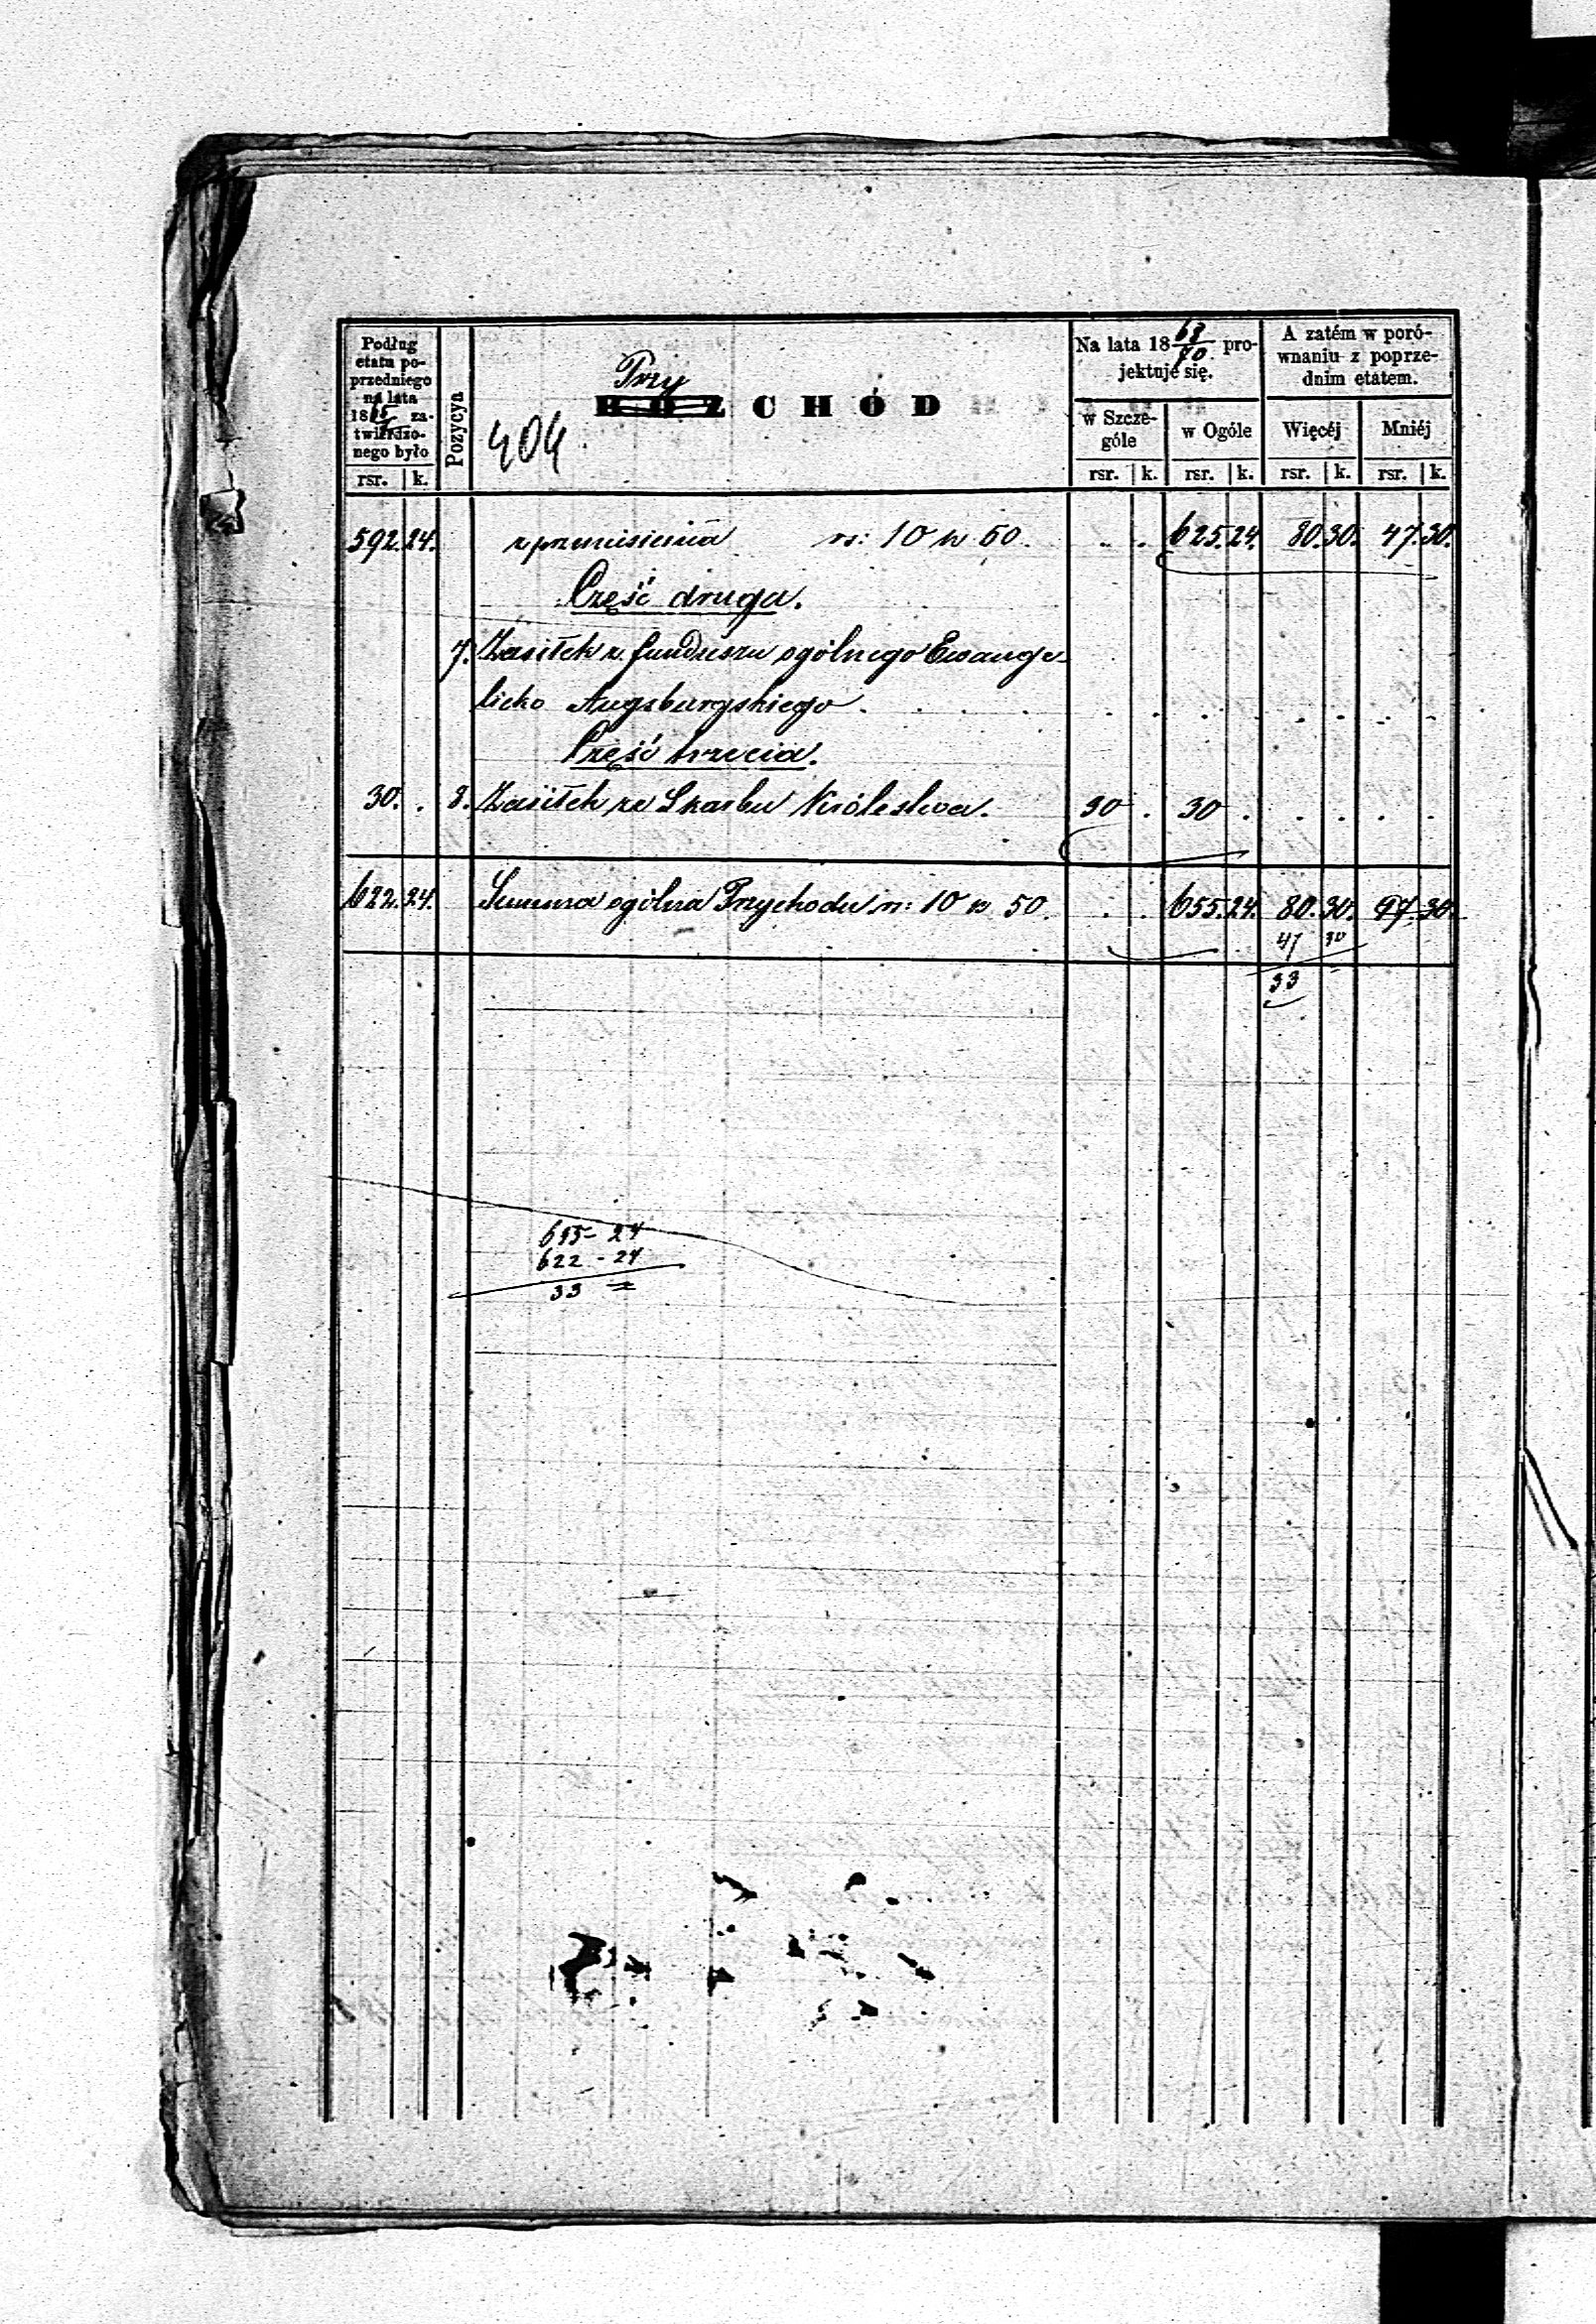 Podług
etatu po-
przedniego
na lata
18 za-
twierdzo-
nego było
rsr. k.
Pozycya
404
Przy
ROZCHÓD
Na lata 18 68/70 pro-
jektuje się.
w Szcze-
góle
w Ogóle
rsr. k. rsr. k.
A zatém w poró-
wnaniu z poprze-
dnim etatem.
Więcéj Mniéj
rsr. k. rsr. k.
592. 24. z przeniesienia rs: 10 k 50. . . 625. 24. 80. 30. 47. 30.
Część druga.
7. Zasiłek z funduszu ogólnego Ewange-
licko Augsburgskiego . . . . .
Część trzecia.
30. . 8. Zasiłek ze Skarbu Królestwa. 30 . 30 . . . . .
622. 24. Summa ogólna Przychodu rs: 10 k 50. . . 655. 24. 80. 30. 47. 30.
47 30
33
655 - 24
622 - 24
33 =